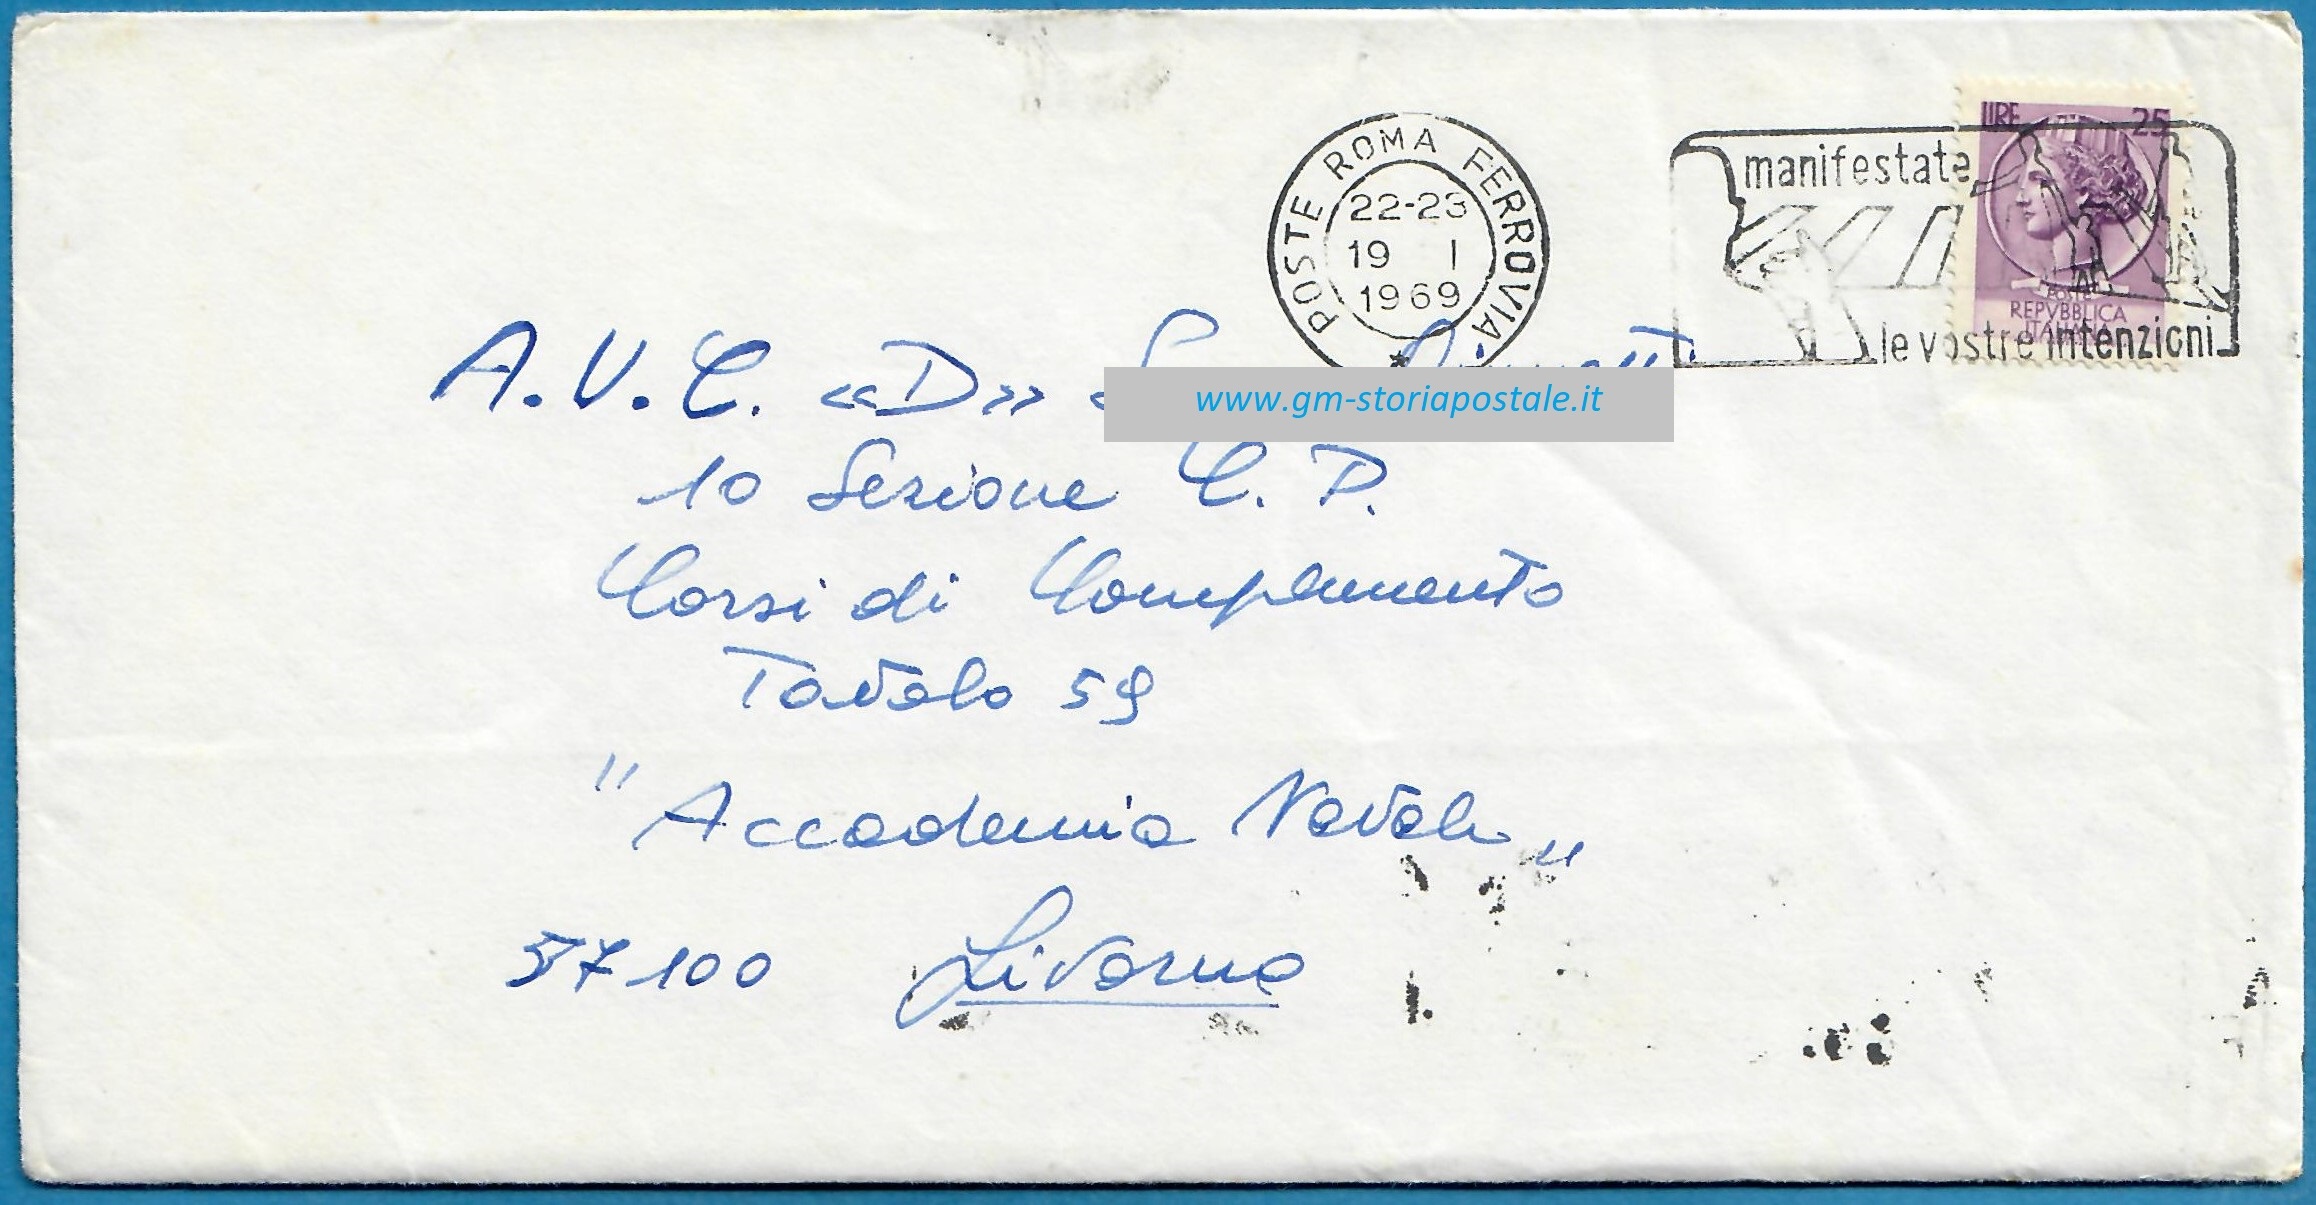 POSTE ROMA FERROVIA
22-23
19 I
1969
manifestate
le vostre intenzioni
LIRE 25
POSTE
REPVBBLICA
ITALIANA
A.V.C. «D»
www.gm-storiapostale.it
10 Sezione C. P.
Corsi di Complemento
Tavolo 59
"Accademia Navale„
57100 Livorno